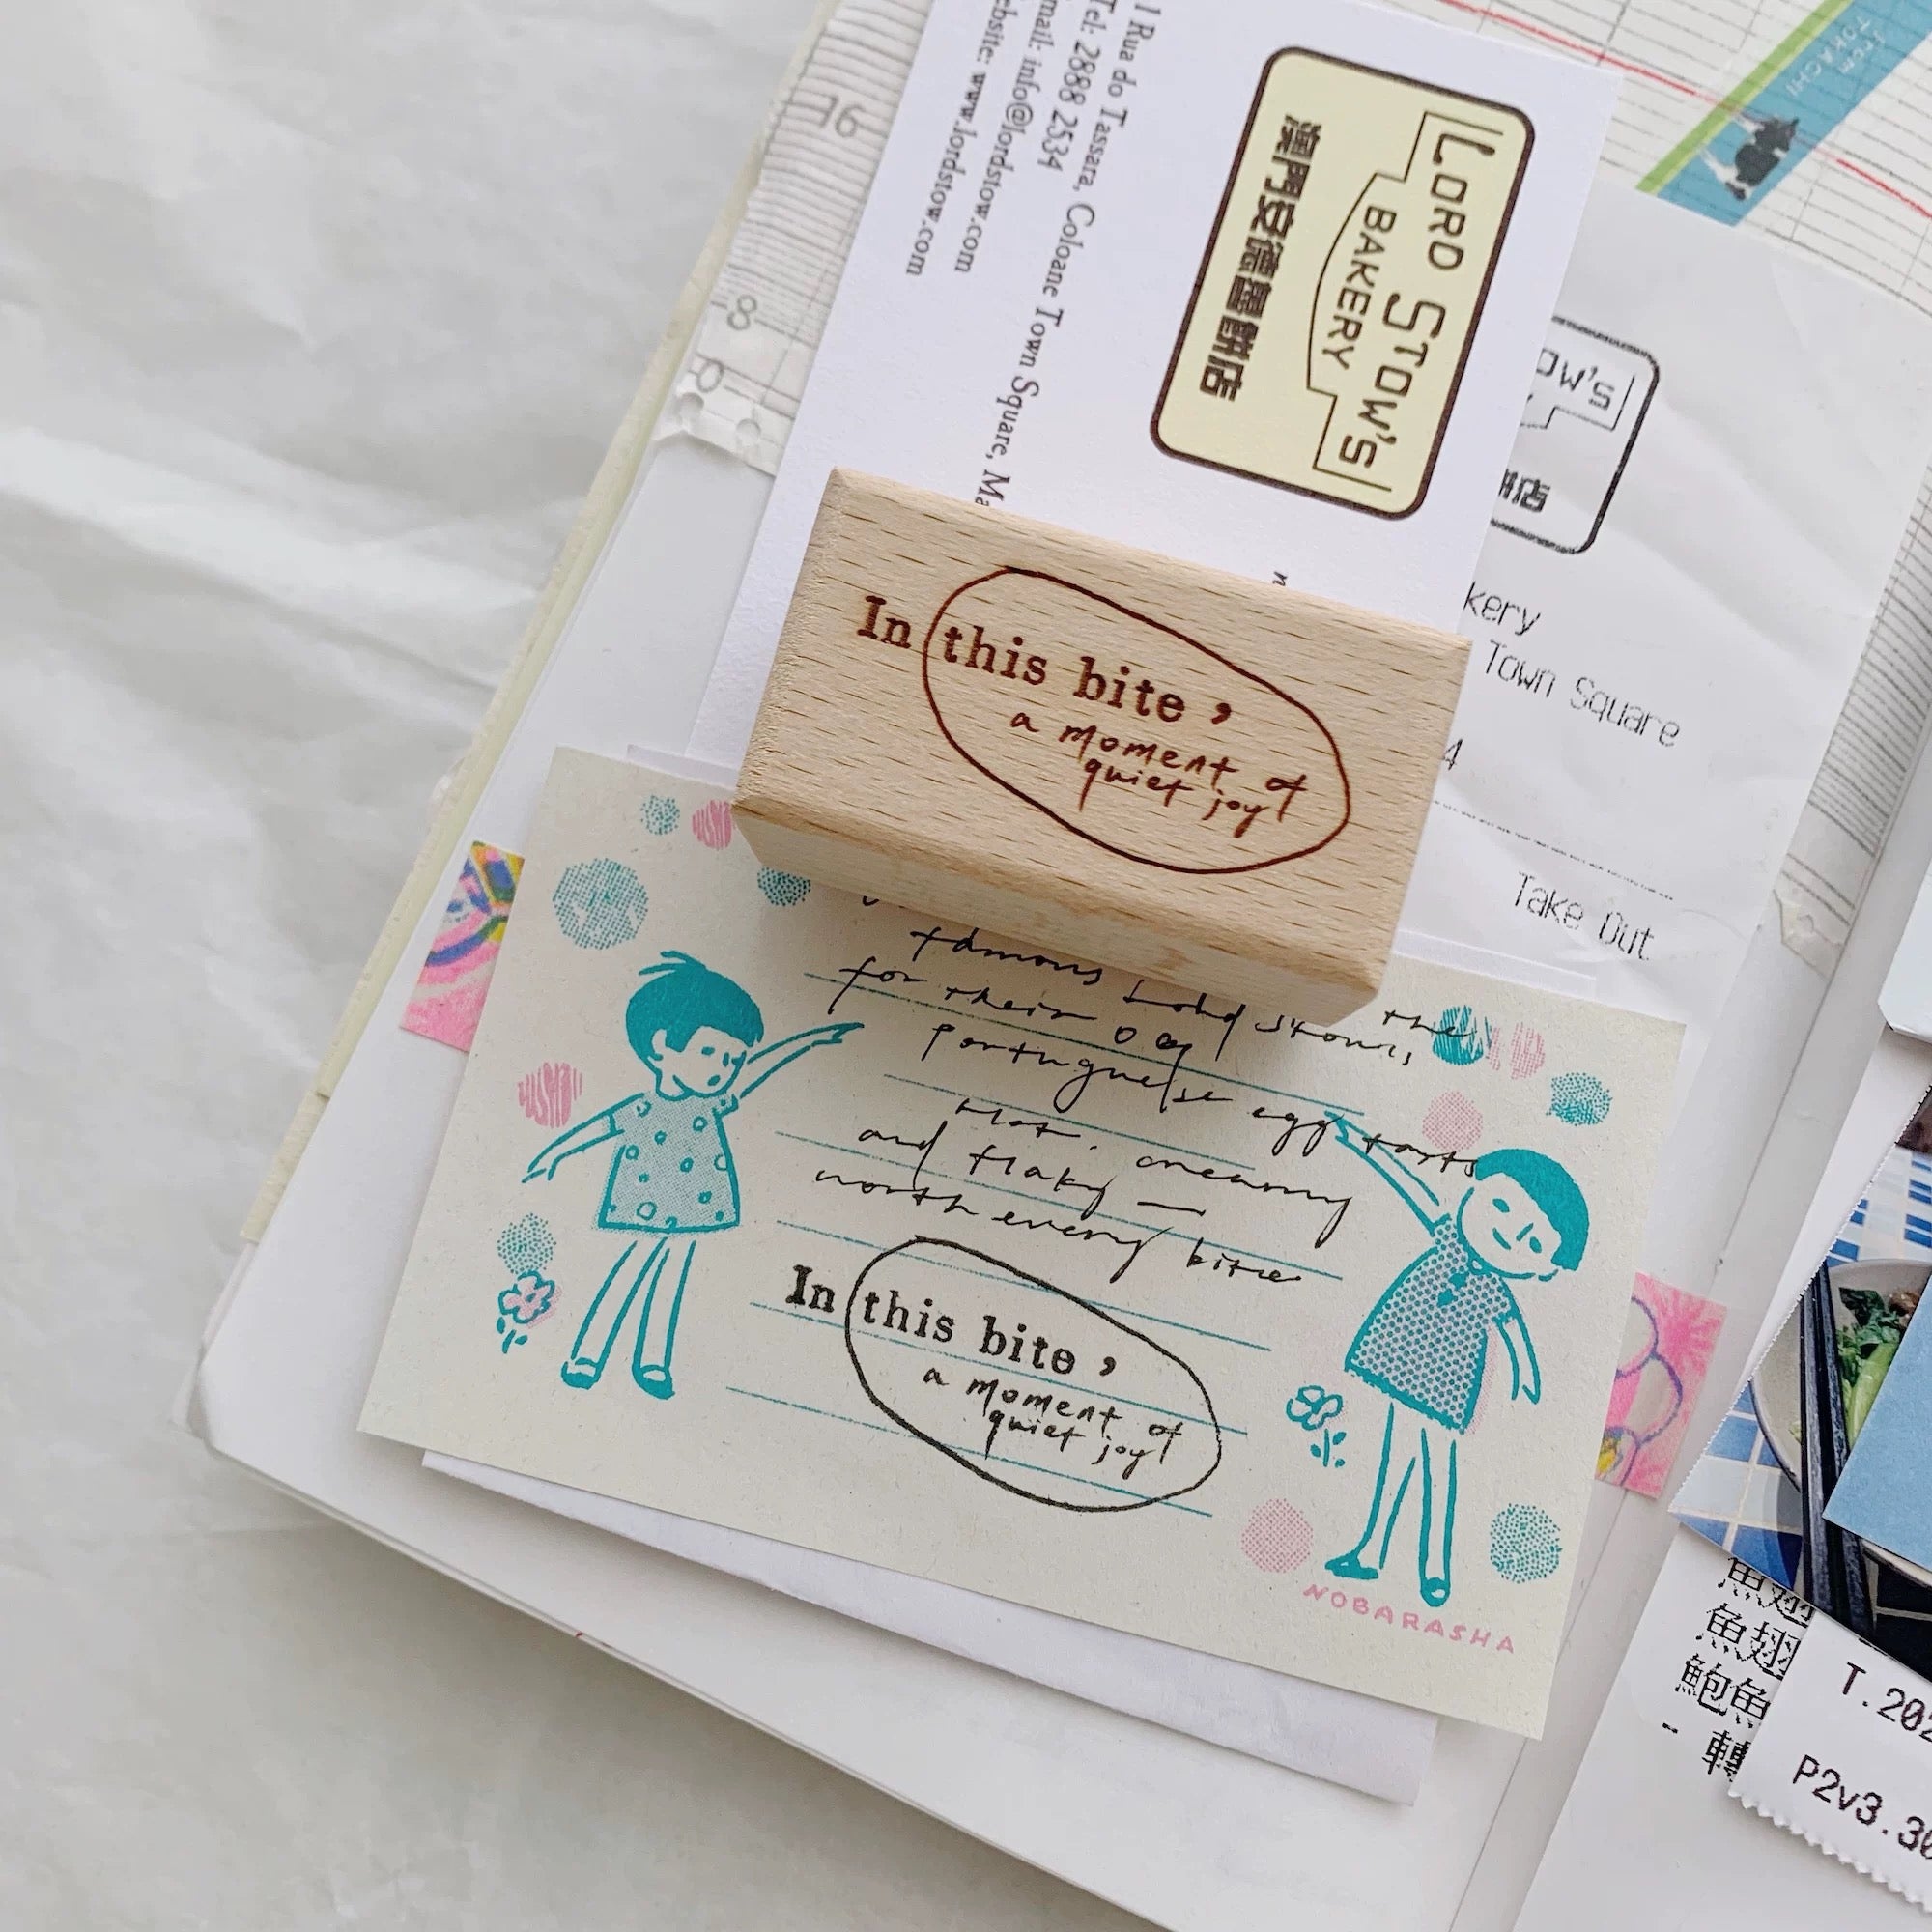 1 Rua do Tassara, Coloane Town Square, Ma
Tel: 2888 2534
mail: info@lordstow.com
ebsite: www.lordstow.com
LORD STOW'S
BAKERY
澳門安德魯餅店
from
TOKACHI
76
8
OW'S
餅店
kery
Town Square
4
Take Out
In this bite,
a moment of
quiet joy
famous Lord Stow's, the
for their
Portuguese egg tarts
Hot, creamy
and flaky —
worth every bite
In this bite,
a moment of
quiet joy
NOBARASHA
魚翅
魚翅
鮑魚
- 轉
T.202
P2v3.30